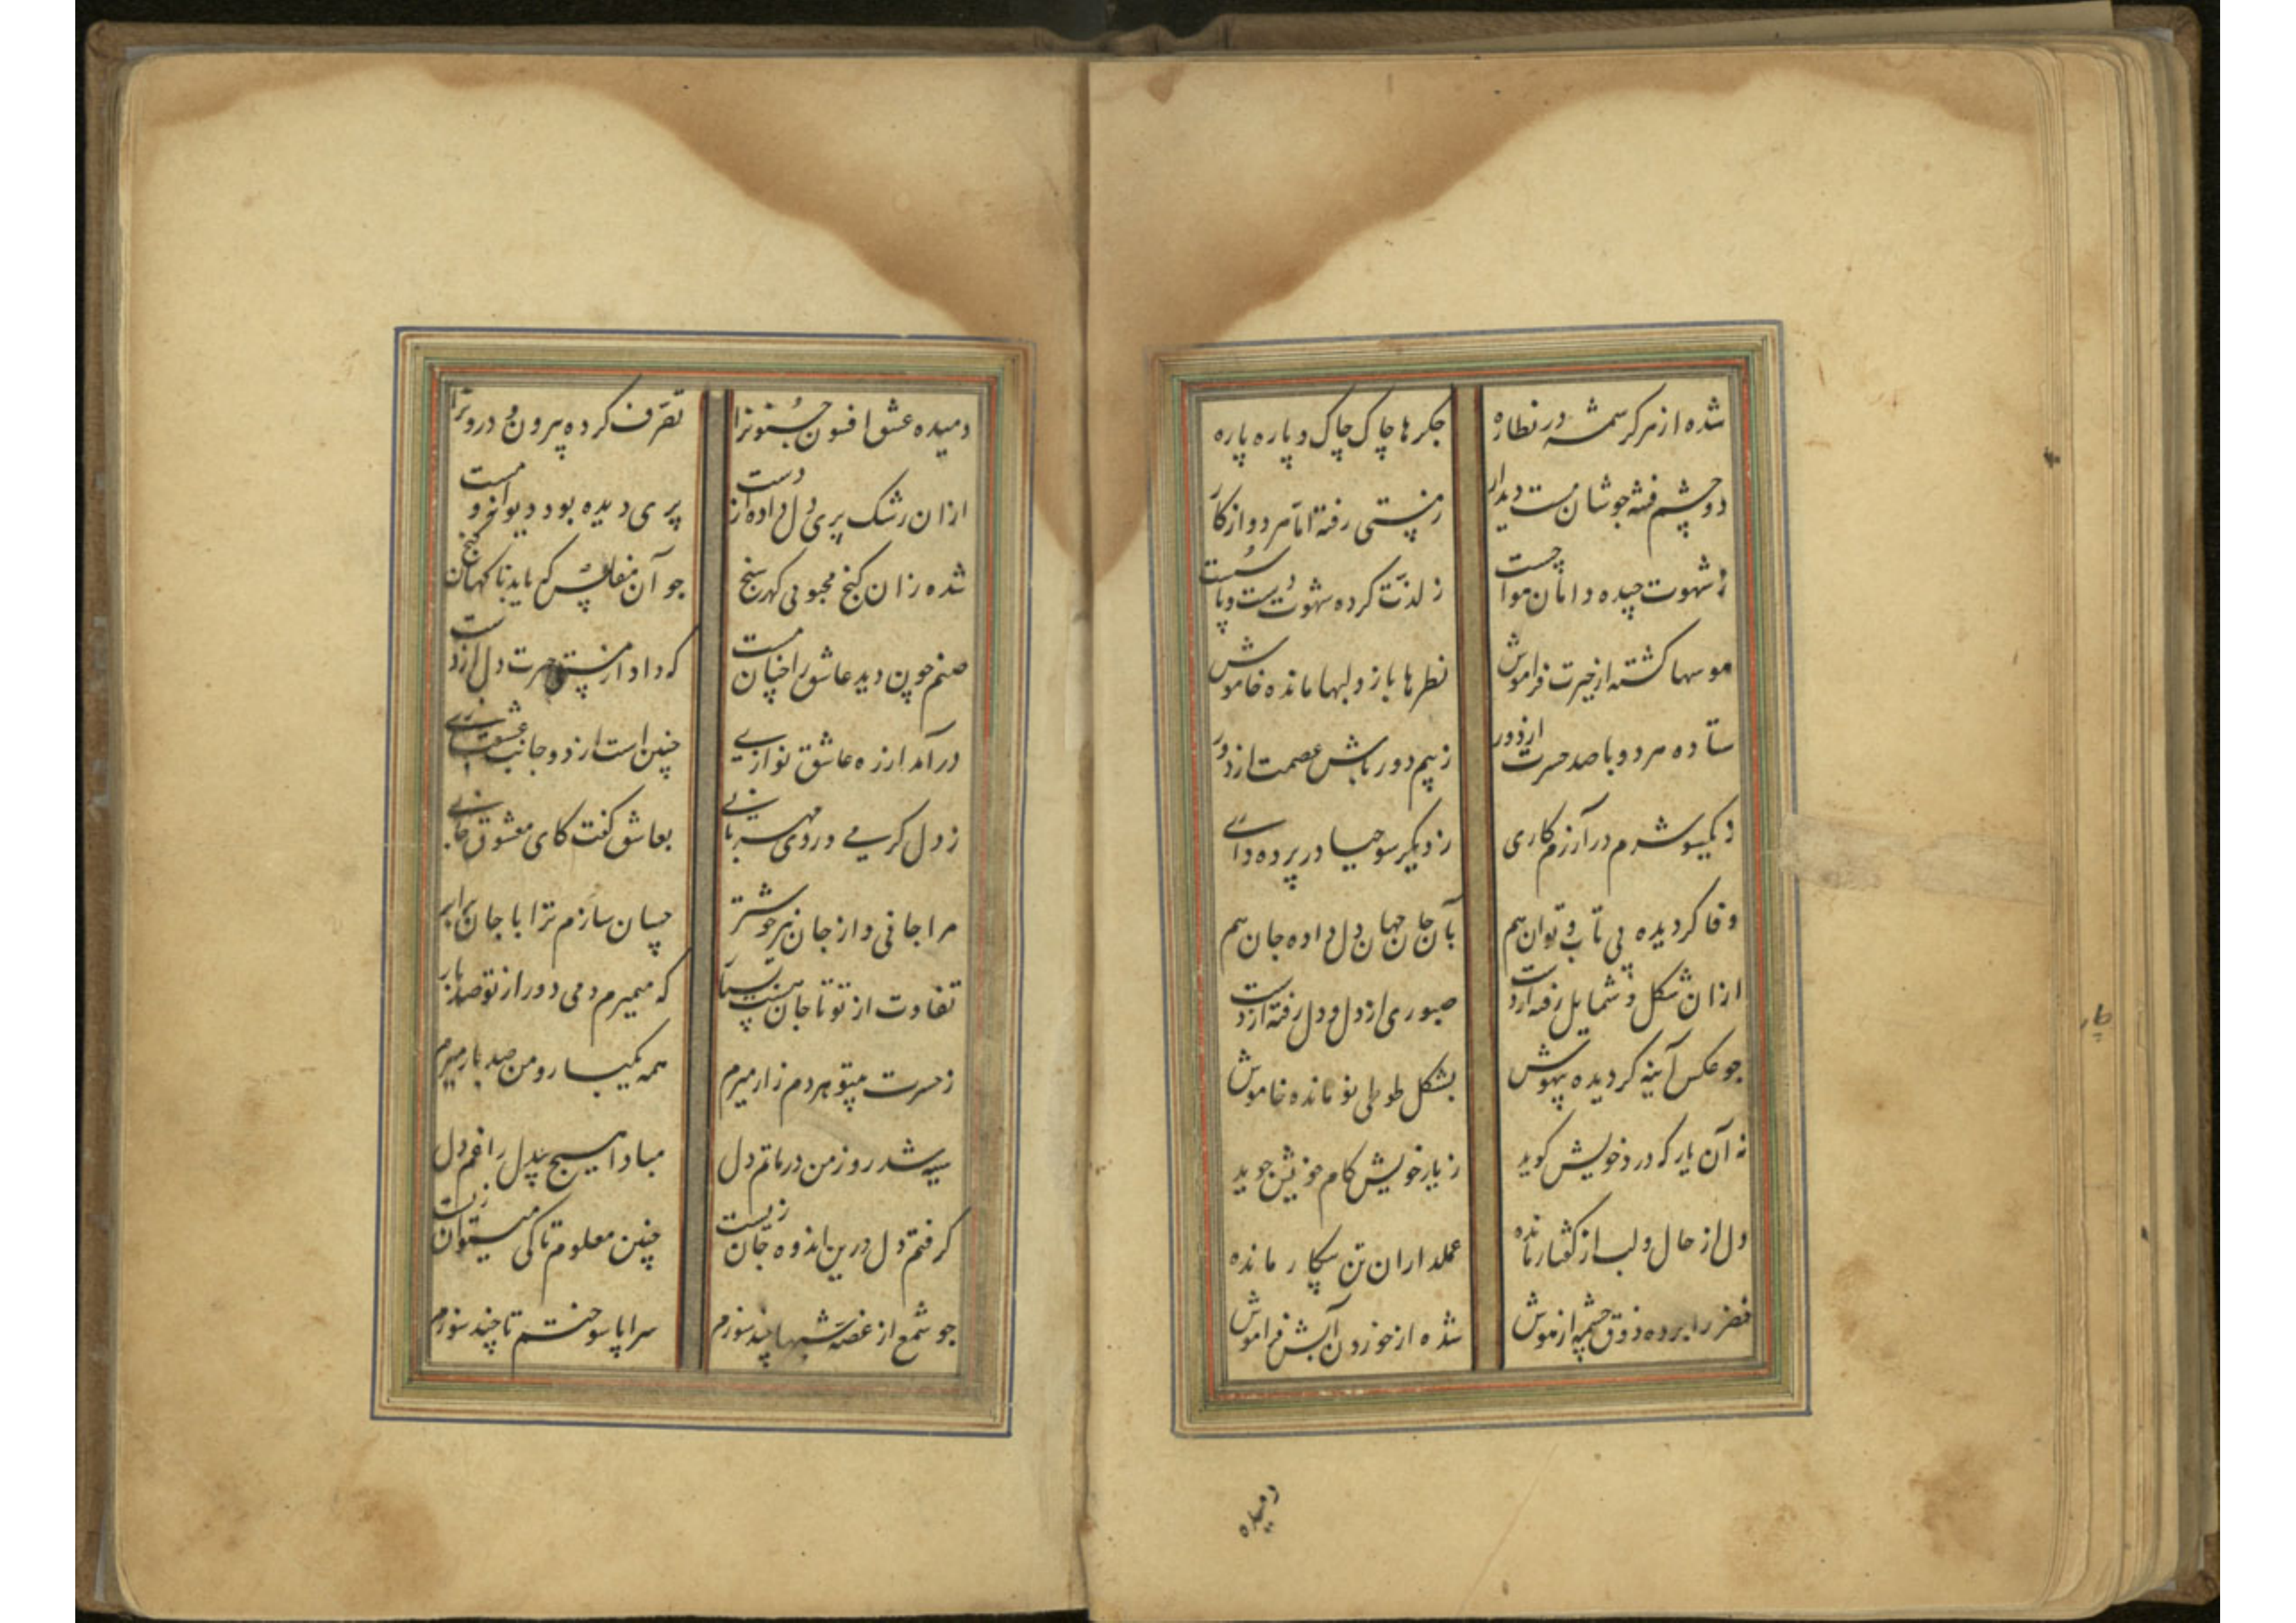 شده از هر کرشمه در نظاره جکرها چاک چاک و پاره پاره
دو چشم فتنه جوشان مست دیدار زمستی رفته اما هر دو از کار
ز شهوت چیده دامان هوا چست ز لذت کرده شهوت دست و پا سست
هوسها کشته از حیرت فراموش نظرها باز و لبها مانده خاموش
ستاده هر دو با صد حسرت از دور ز بیم دور باش عصمت از دور
ز یکسو شرم در آزرم کاری ز دیکر سو حیا در پرده داری
وفا کردیده بی تاب و توان هم بآن جان جهان دل داده جان هم
ازان شکل و شمایل رفته از دست صبوری از دل و دل رفته از دست
جو عکس آینه کردیده بیهوش بشکل طوطی نو مانده خاموش
نه آن یار که درد خویش کوید ز یار خویش کام خویش جوید
دل از حال و لب از کفتار مانده عملداران تن بیکار مانده
خضر را برده ذوق چشمه از هوش شده از خوردن آبش فراموش
دمیده
دمیده عشق افسون جنونرا تصرف کرده بیرون و درونرا
ازان رشک پری دل داده از دست پری دیده بود دیوانه و مست
شده زان کنج محبوبی کهر سنج جو آن مفلس که یابد ناکهان کنج
صنم چون دید عاشق را چنان مست که داد از مستی حیرت دل از دست
درآمد از ره عاشق نوازی چنین است از دو جانب عشقبازی
ز دل کرمی و دردی مهربانی بعاشق کفت کای معشوق جانی
مرا جانی و از جان نیز خوشتر چسان سازم ترا با جان برابر
تفاوت از تو تا جان هست بسیار که میمیرم دمی دور از تو صد بار
ز حسرت بیتو هر دم زار میرم همه یکبار و من صد بار میرم
سیه شد روز من در ماتم دل مبادا هیچ بیدل را غم دل
کرفتم دل درین اندوه جان زیست چنین معلوم تا کی میتوان زیست
جو شمع از غصه شبها چند سوزم سراپا سوختم تا چند سوزم